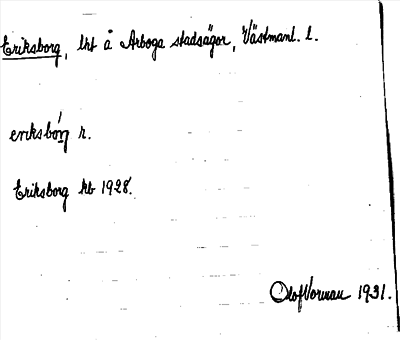 Eriksborg, lht å Arboga stadsägor, Västmanl. l.
eriksbórj r.
Eriksborg kb 1928.
Olof Vorman 1931.